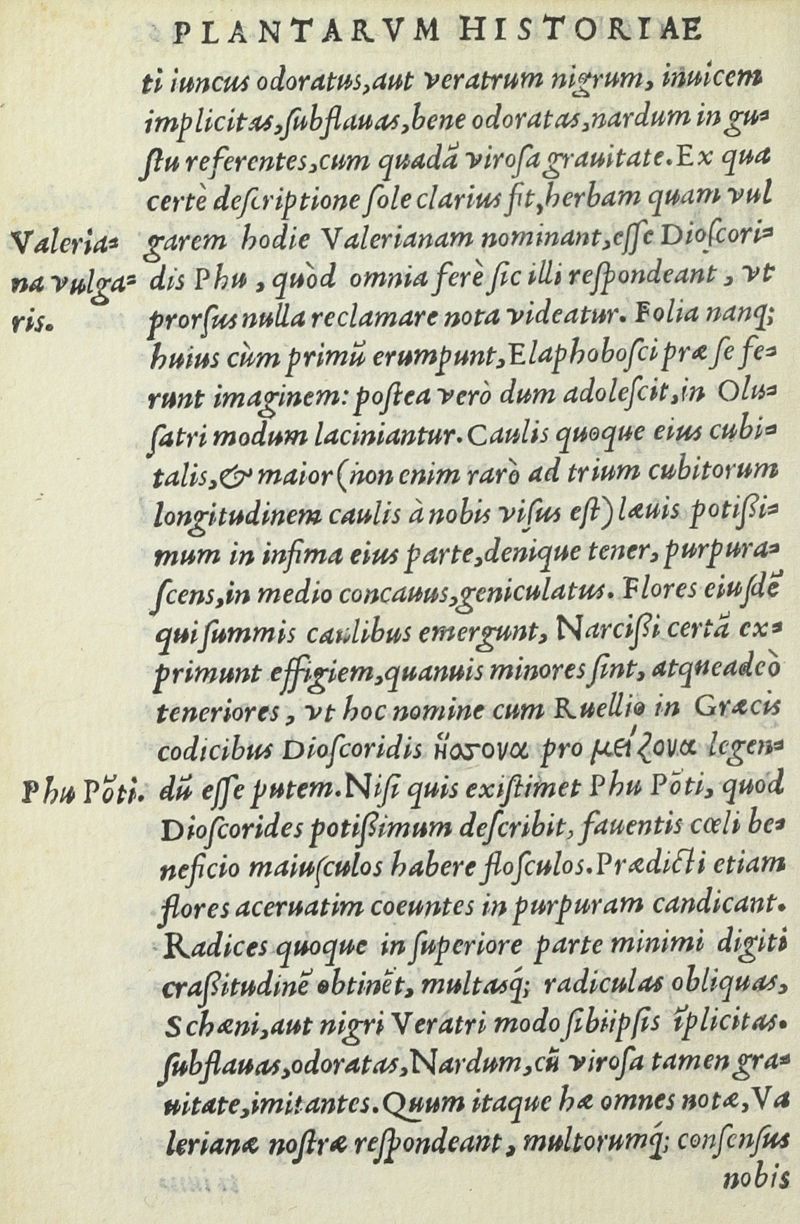 PLANTARVM HISTORIAE
ti iuncus odoratus, aut veratrum nigrum, inuicem
implicitas, ſubflauas, bene odoratas, nardum in gu-
ſtu referentes, cum quadã viroſa grauitate. Ex qua
certè deſcriptione ſole clarius fit, herbam quam vul
Valeria-
na vulga-
ris.
garem hodie Valerianam nominant, eſſe Dioſcori-
dis Phu, quòd omnia ferè ſic illi reſpondeant, vt
prorſus nulla reclamare nota videatur. Folia nanq;
huius cùm primũ erumpunt, Elaphoboſci præ ſe fe-
runt imaginem: poſtea verò dum adoleſcit, in Olu-
ſatri modum laciniantur. Caulis quoque eius cubi-
talis, & maior (non enim rarò ad trium cubitorum
longitudinem caulis à nobis viſus eſt) læuis potißi-
mum in infima eius parte, denique tener, purpura-
ſcens, in medio concauus, geniculatus. Flores eiuſdẽ
qui ſummis caulibus emergunt, Narcißi certã ex-
primunt effigiem, quanuis minores ſint, atque adeò
teneriores, vt hoc nomine cum Ruellio in Græcis
codicibus Dioſcoridis ἥσσονα pro μείζονα legen-
Phu Põti.
dũ eſſe putem. Niſi quis exiſtimet Phu Põti, quod
Dioſcorides potißimum deſcribit, fauentis cœli be-
neficio maiuſculos habere floſculos. Prædicti etiam
flores aceruatim coeuntes in purpuram candicant.
Radices quoque in ſuperiore parte minimi digiti
craßitudinẽ obtinẽt, multasq́; radiculas obliquas,
Schœni, aut nigri Veratri modo ſibiipſis ĩplicitas.
ſubflauas, odoratas, Nardum, cũ viroſa tamen gra-
uitate, imitantes. Quum itaque hæ omnes notæ, Va
lerianæ noſtræ reſpondeant, multorumq́; conſenſus
nobis